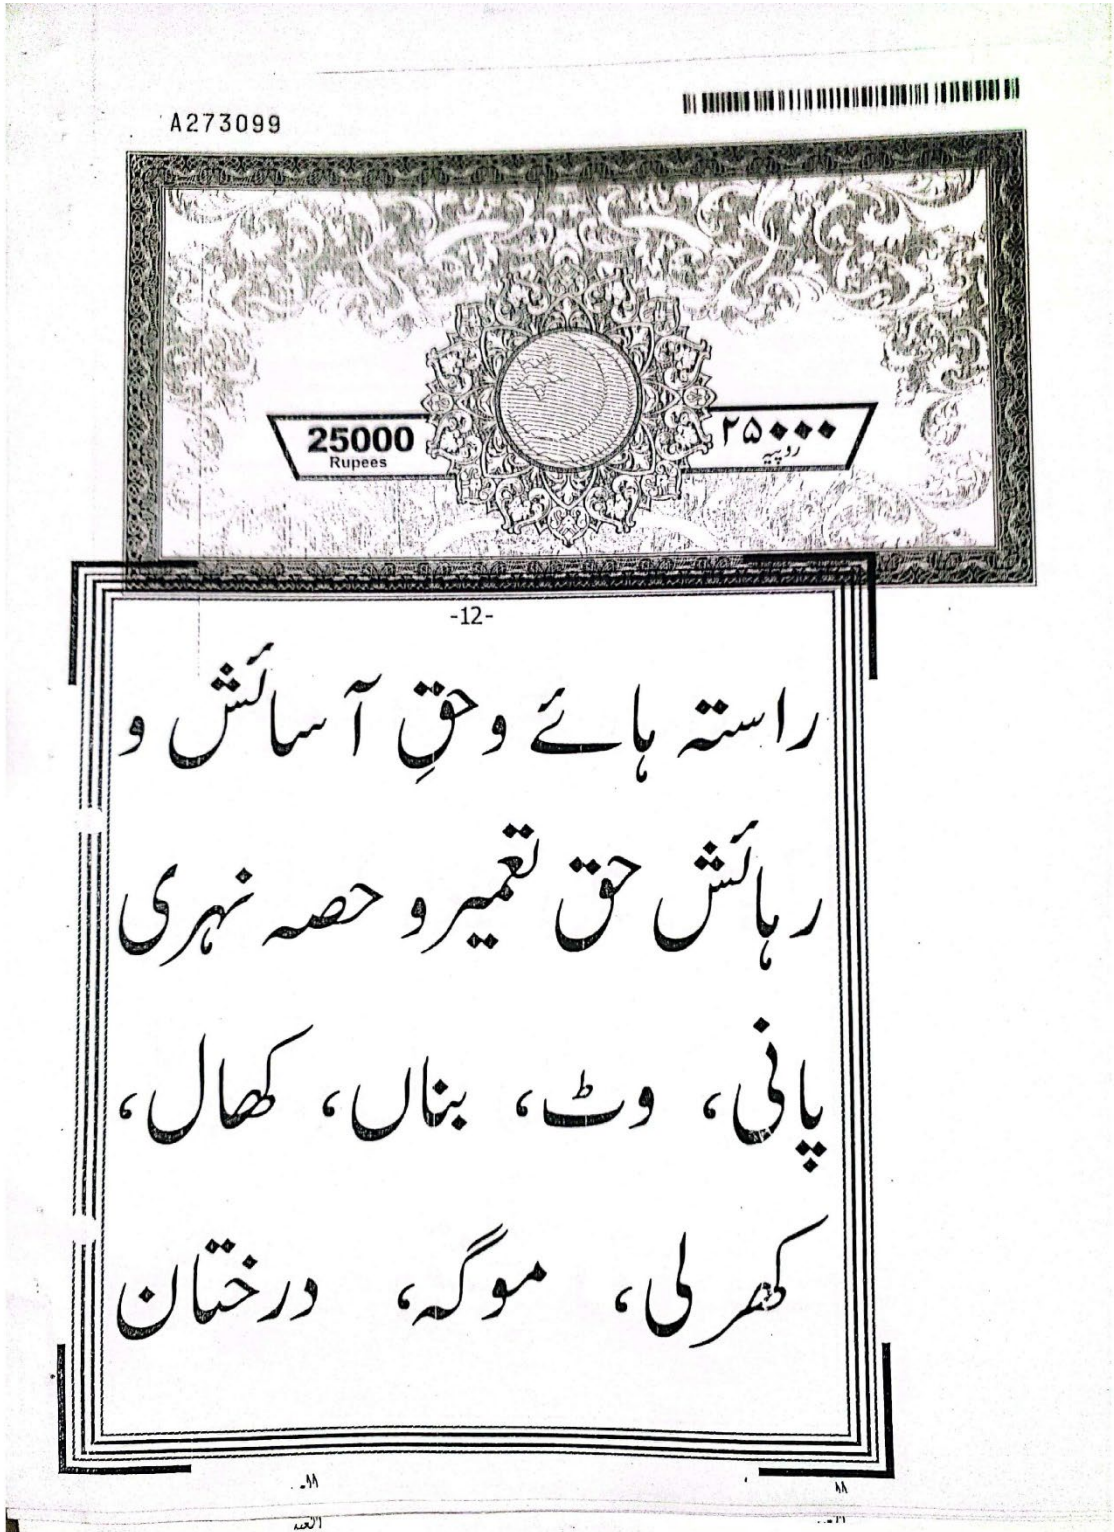 A273099
25000
Rupees
۲۵۰۰۰
روپیہ
-12-
راستہ ہائے و حقِ آسائش و
رہائش حق تعمیر و حصہ نہری
پانی، وٹ، بناں، کھال،
کھرلی، موگہ، درختان